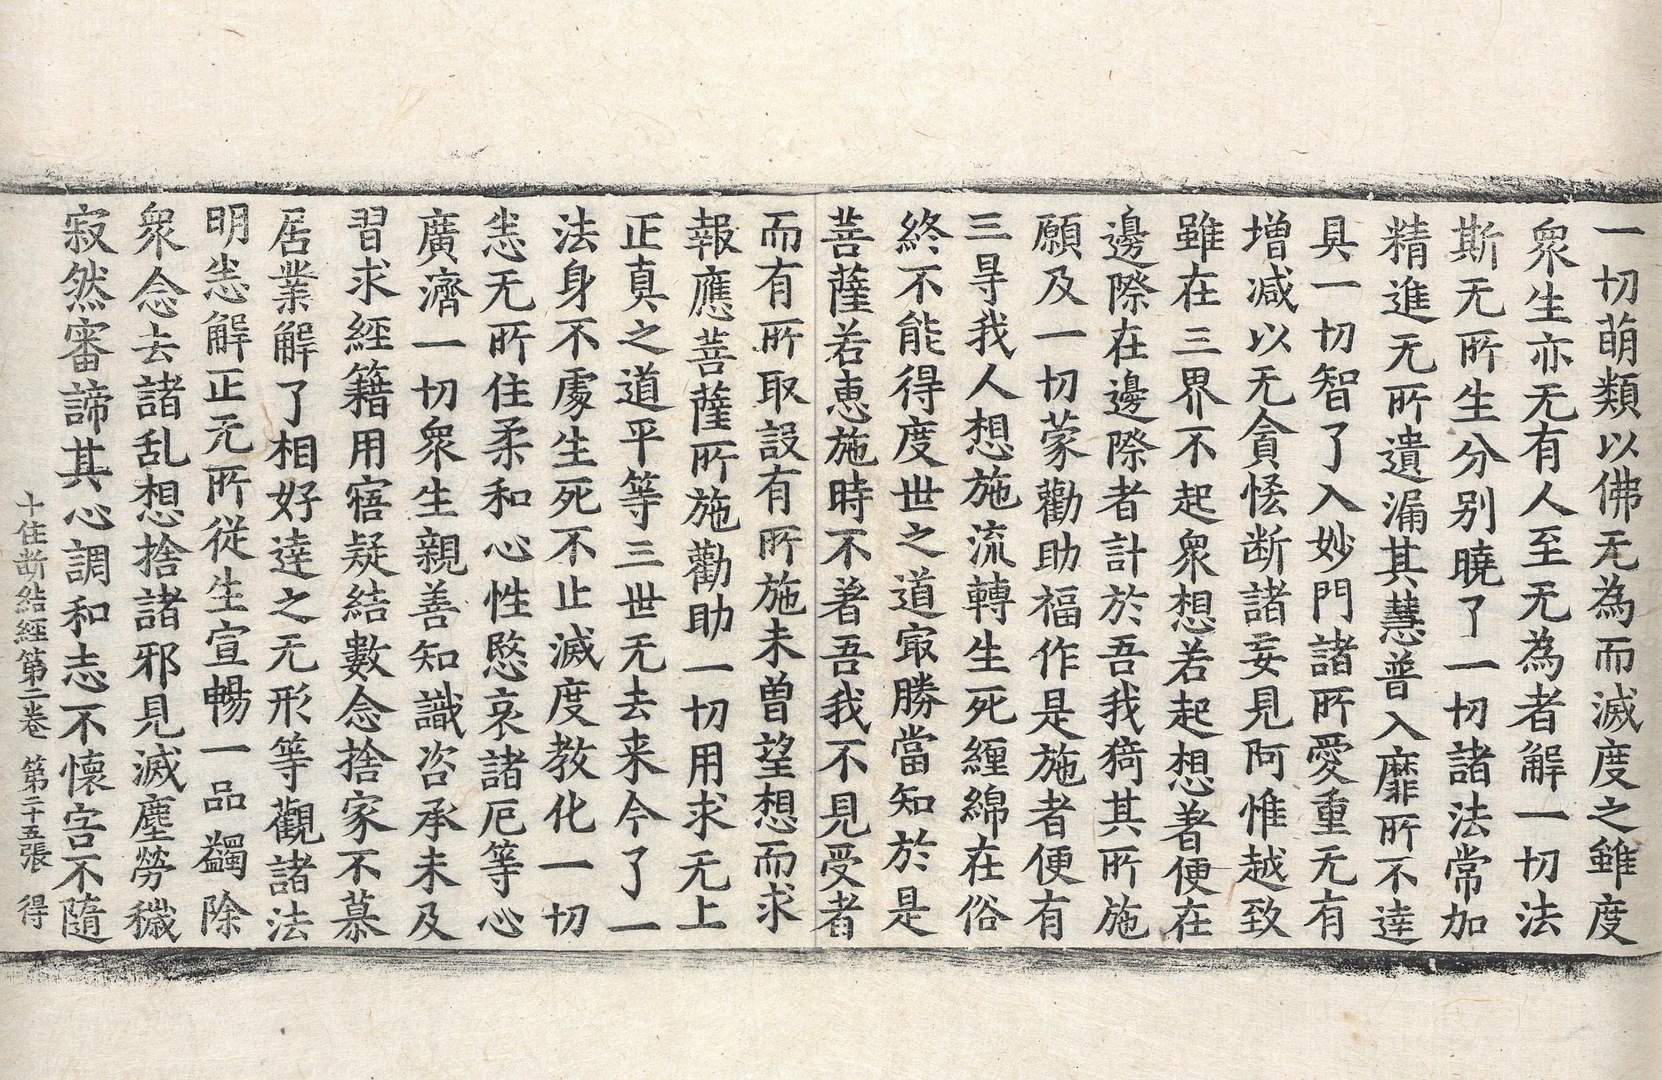 一切萌類以佛无為而滅度之雖度
衆生亦无有人至无為者解一切法
斯无所生分别曉了一切諸法常加
精進无所遺漏其慧普入靡所不達
具一切智了入妙門諸所愛重无有
增减以无貪恡断諸妄見阿惟越致
雖在三界不起衆想若起想著便在
邊際在邊際者計於吾我猗其所施
願及一切蒙勸助福作是施者便有
三㝵我人想施流轉生死纏綿在俗
終不能得度世之道冣勝當知於是
菩薩若惠施時不著吾我不見受者
而有所取設有所施未曾望想而求
報應菩薩所施勸助一切用求无上
正真之道平等三世无去来今了一
法身不處生死不止滅度教化一切
恙无所住柔和心性愍哀諸厄等心
廣濟一切衆生親善知識咨承未及
習求經籍用寤疑結數念捨家不慕
居業解了相好達之无形等觀諸法
明恙解正无所從生宣暢一品蠲除
衆念去諸乱想捨諸邪見滅塵勞穢
寂然審諦其心調和志不懷害不隨
十住断結經第二卷 第二十五張 得